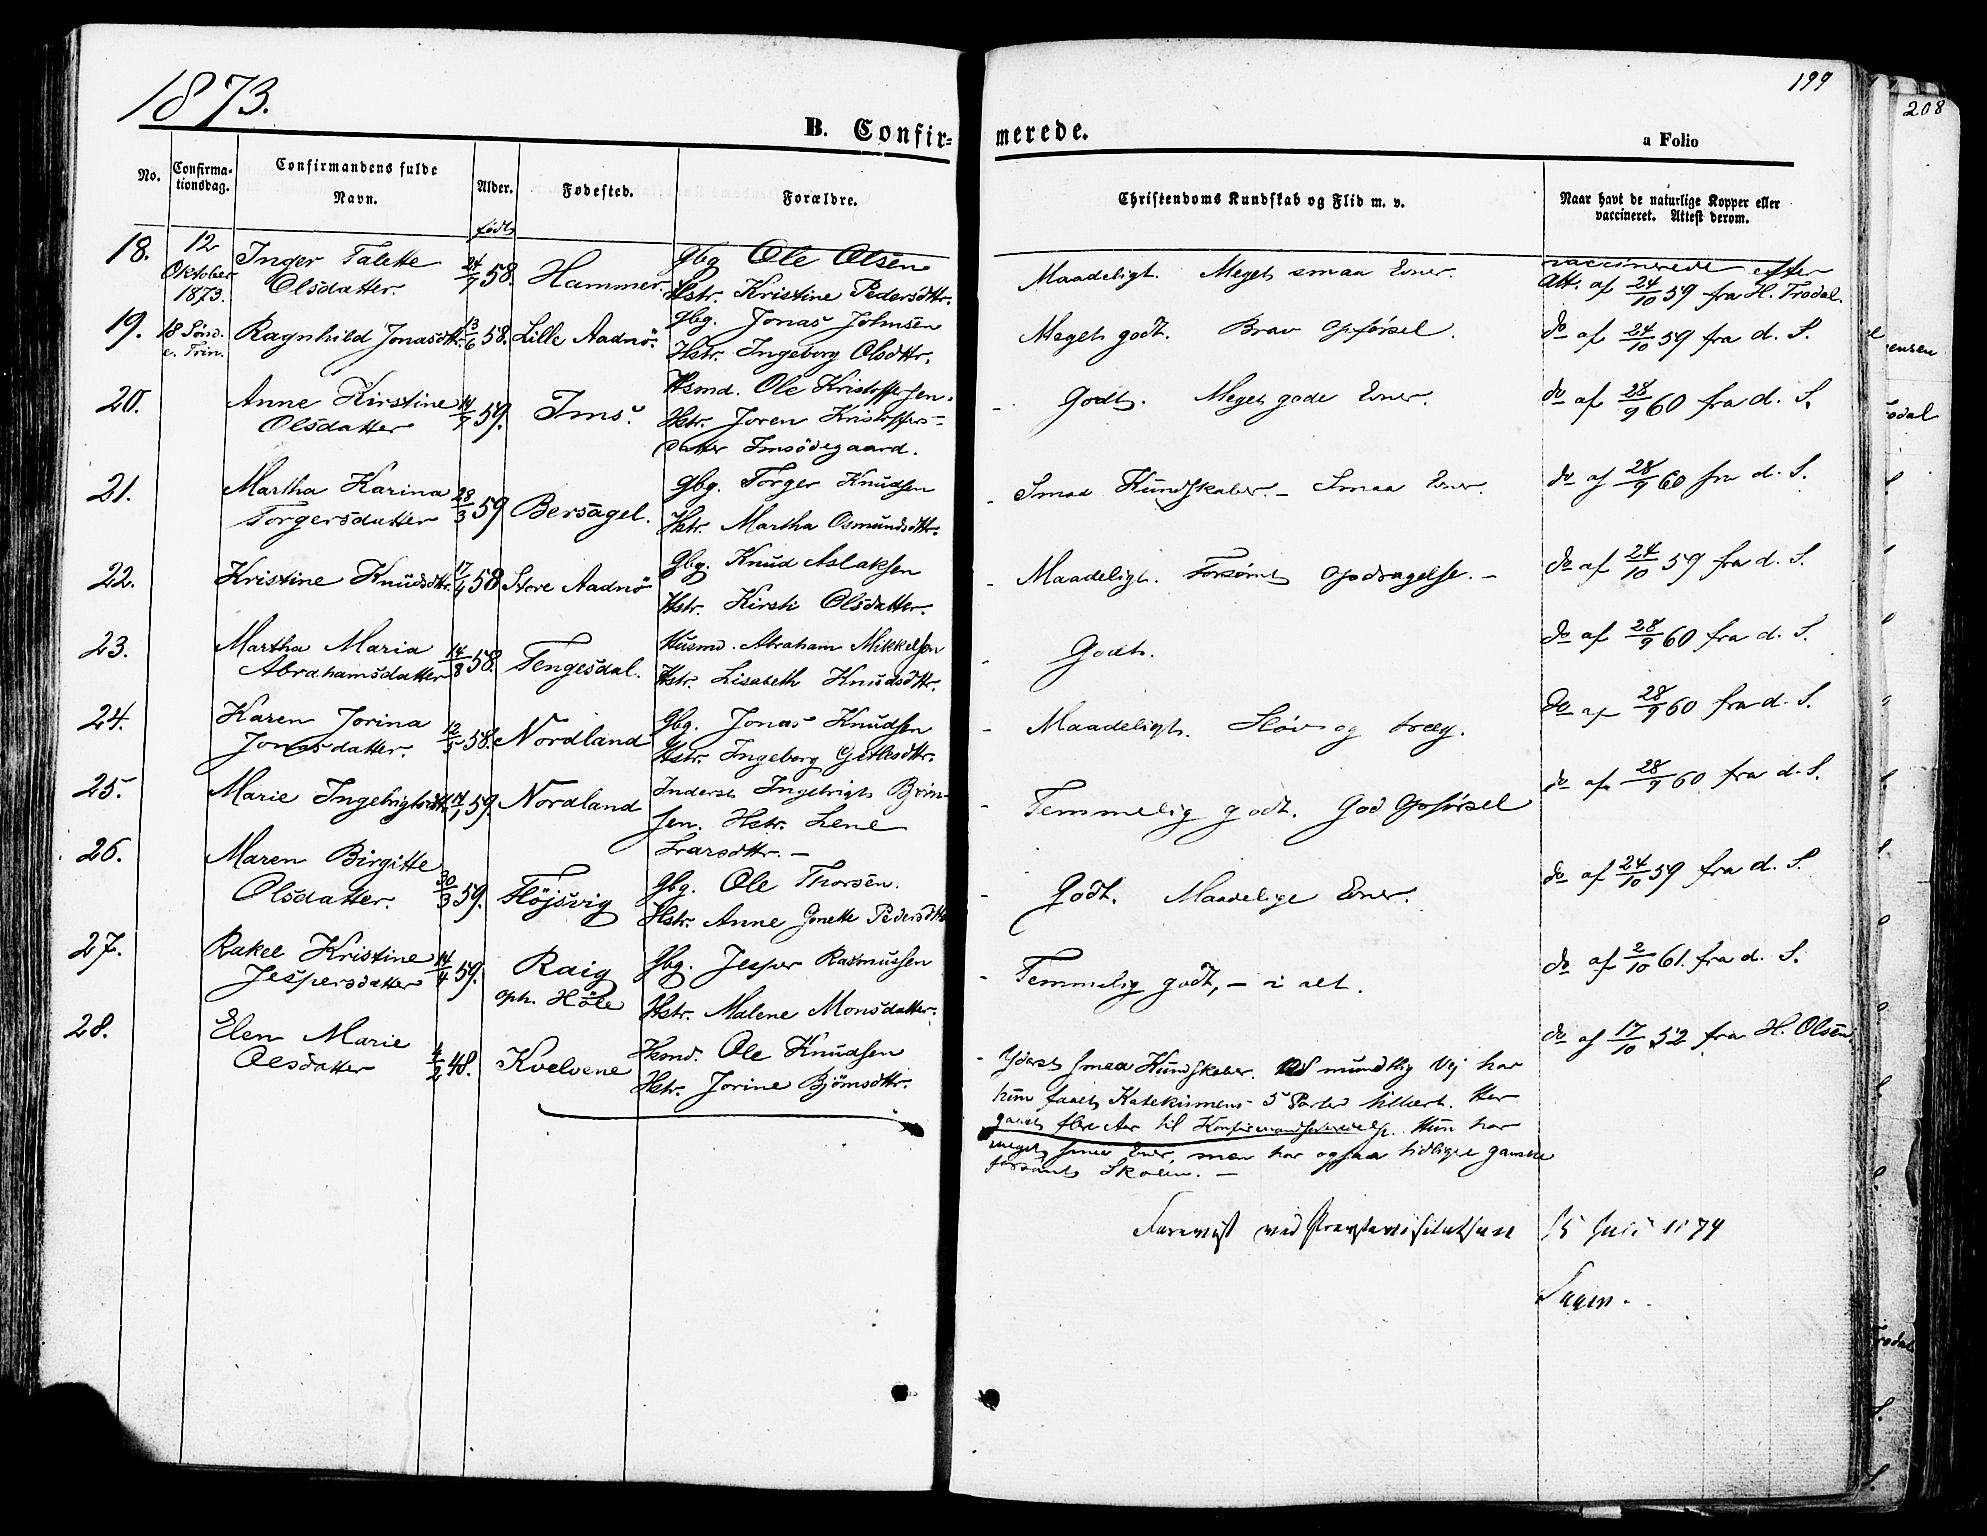 1873.
199
208
B. Confir-
merede.
a Folio
No.
Confirma-
tionsdag.
Confirmandens fulde
Navn.
Alder.
Fødested.
Forældre.
Christendoms Kundskab og Flid m. v.
Naar havt de naturlige Kopper eller
vaccineret. Attest derom.
født
18. 12 Oktober 1873. Inger Talette Olsdatter. 24/9 58. Hammer. Gbg Ole Olsen
Hstr. Kristine Pedersdttr.
Maadeligt. Meget smaa Evner.
vaccinerede efter
Att. af 24/10 59 fra H. Trodal.
19. 18 Sønd. e. Trin. Ragnhild Jonasdttr. 13/6 58. Lille Aadnö. Gbg. Jonas Johnsen
Hstr. Ingeborg Olsdttr.
Meget godt. Brav Opførsel.
do af 24/10 59 fra d. S.
20. Anne Kirstine Olsdatter 14/9 59. Ims. Hsmd. Ole Kristoffersen.
Hstr. Joren Kristoffers-
datter Imsödegaard.
Godt. Meget gode Evner.
do af 28/9 60 fra d. S.
21. Martha Karina Torgersdatter 28/3 59 Bersagel. Gbg. Torger Knudsen
Hstr. Martha Osmundsdttr.
Smaa Kundskaber. – Smaa Evner.
do af 28/9 60 fra d. S.
22. Kristine Knudsdttr. 17/9 58 Store Aadnö Gbg. Knud Aslaksen
Hstr. Kirsti Olsdatter.
Maadeligt. Forsømt Opdragelse. –
do af 24/10 59 fra d. S.
23. Martha Maria Abrahamsdatter 14/8 58. Tengesdal. Husmd. Abraham Mikkelsen
Hstr. Lisabeth Knudsdttr.
Godt.
do af 28/9 60 fra d. S.
24. Karen Jorina Jonasdatter. 12/5 58. Nordland Gbg. Jonas Knudsen
Hstr. Ingeborg Gitlesdttr.
Maadeligt. Sløv og træg.
do af 28/9 60 fra d. S.
25. Marie Ingebrigtsdttr. 59. Nordland Inderst Ingebrigt
sen. Hstr. Lene
Larsdttr. –
Temmelig godt. God Opførsel
do af 28/9 60 fra d. S.
26. Maren Birgitte Olsdatter. 30/3 59. Höjsvig Gbg. Ole Thorsen.
Hstr. Anne Jonette Pedersdttr
Godt. Maadelige Evner.
do af 24/10 59 fra d. S.
27. Rakel Kristine Jespersdatter 14/4 59. Raig
oph. Höle Gbg. Jesper Rasmussen
Hstr. Malene Monsdatter.
Temmelig godt, – i alt.
do af 2/10 61. fra d. S.
28. Elen Marie Olsdatter 4/2 48. Kvelvene Hsmd. Ole Knudsen
Hstr. Jorine Björnsdttr.
do af 17/10 52 fra H. Olsen
Yderst smaa Kundskaber. Ad mundtlig Vej har
hun faaet Katekismens 5 Parter tillært. Har
gaaet flere Aar til Konfirmandforberedelse. Hun har
meget smaa Evner, men har ogsaa tidligere ganske
forsømt Skolen. –
Forevist ved Provstevisitatsen 15 Juli 1874